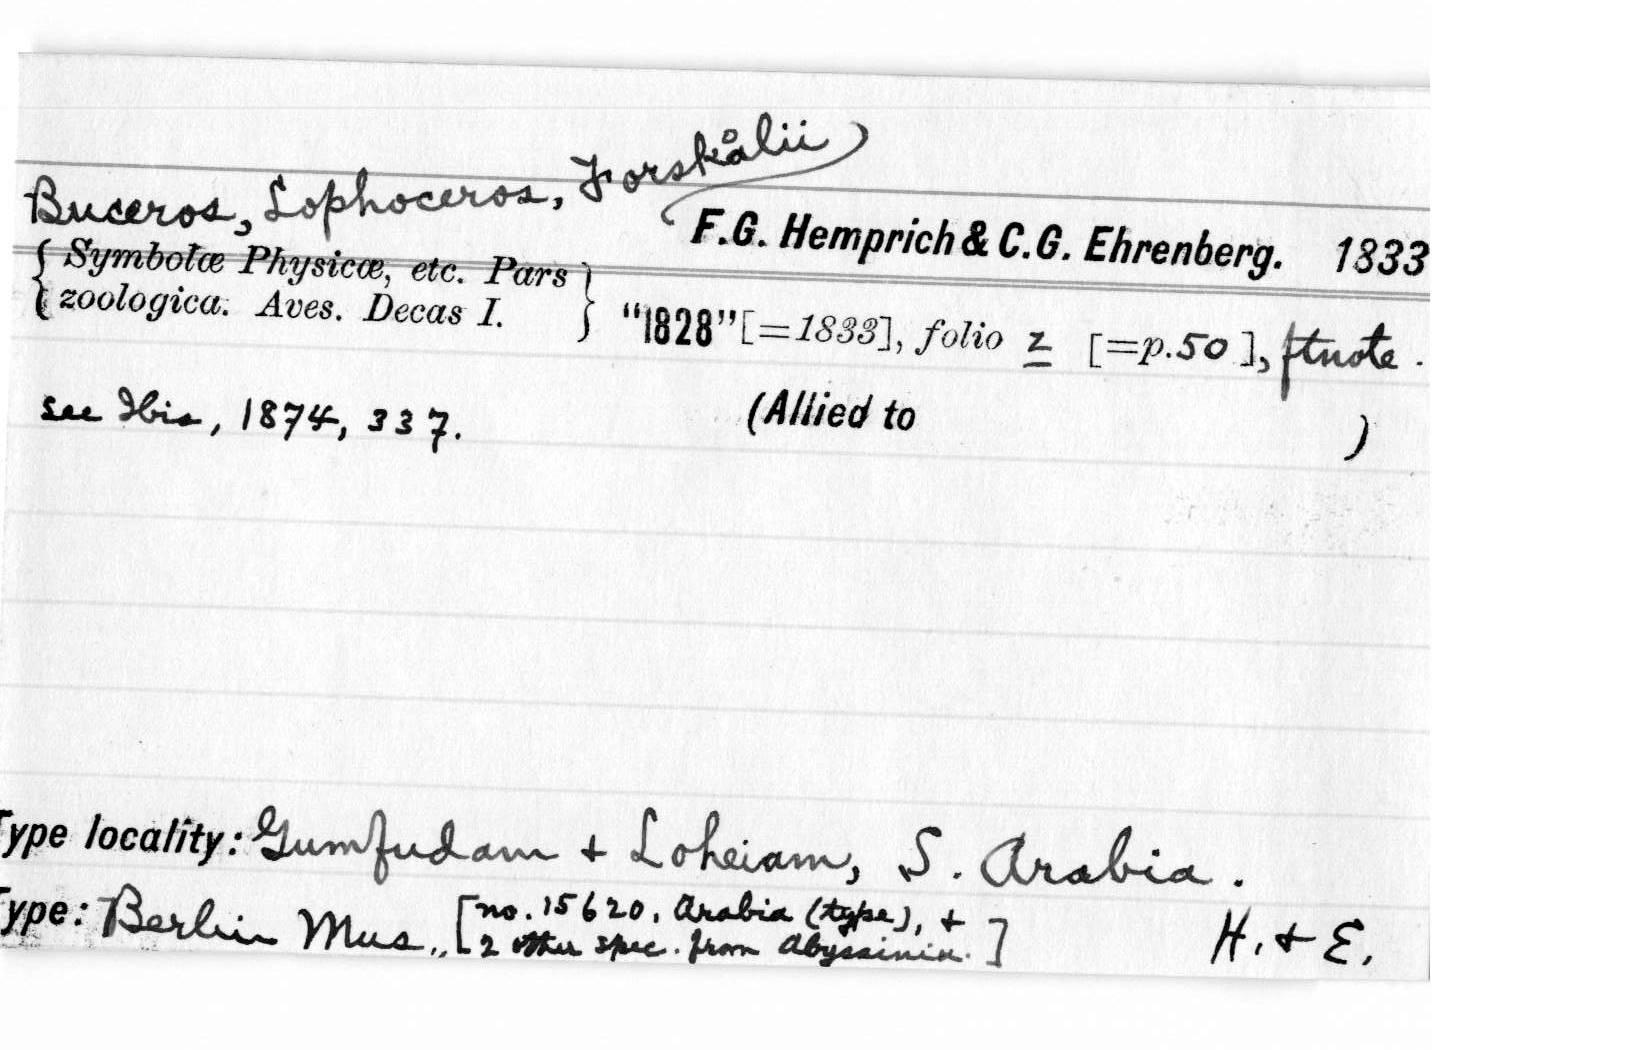 Buceros, Lophoceros, Forskålii
F.G. Hemprich & C.G. Ehrenberg. 1833
{ Symbolæ Physicæ, etc. Pars
zoologica. Aves. Decas I. } "1828" [=1833], folio z [=p.50], ftnote.
see Ibis, 1874, 337. (Allied to )
Type locality: Gumfudam + Loheiam, S. Arabia.
Type: Berlin Mus., [no. 15620, Arabia (type), +
2 other spec. from Abyssinia.] H. + E.